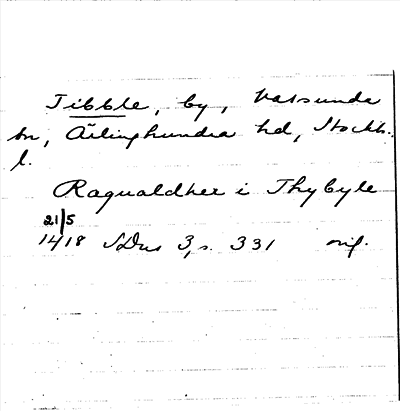 Tibble, by, Vassunda
sn, Ärlinghundra hd, Stockh.
l.
Ragualdher i Thybyle
21/5
1418 SDns 3, s. 331 orig.